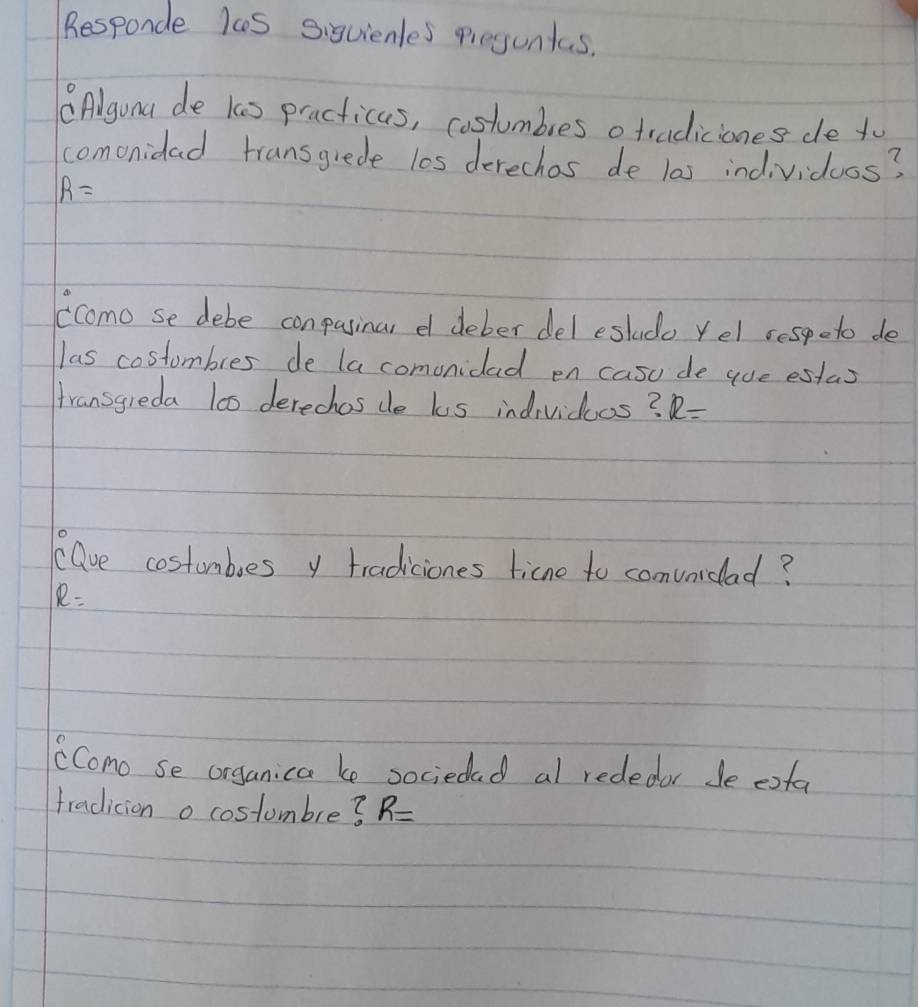 Responde las siguientes preguntas.
¿Alguna de las practicas, costumbres o tradiciones de tu
comonidad transgrede los derechos de los individuos?
R=
¿Como se debe conpasinar el deber del estado y el respeto de
las costumbres de la comunidad en caso de que estas
transgreda los derechos de los individuos? R=
¿Que costumbres y tradiciones tiene tu comunidad?
R=
¿Como se organica la sociedad al rededor de esta
tradicion o costumbre? R=